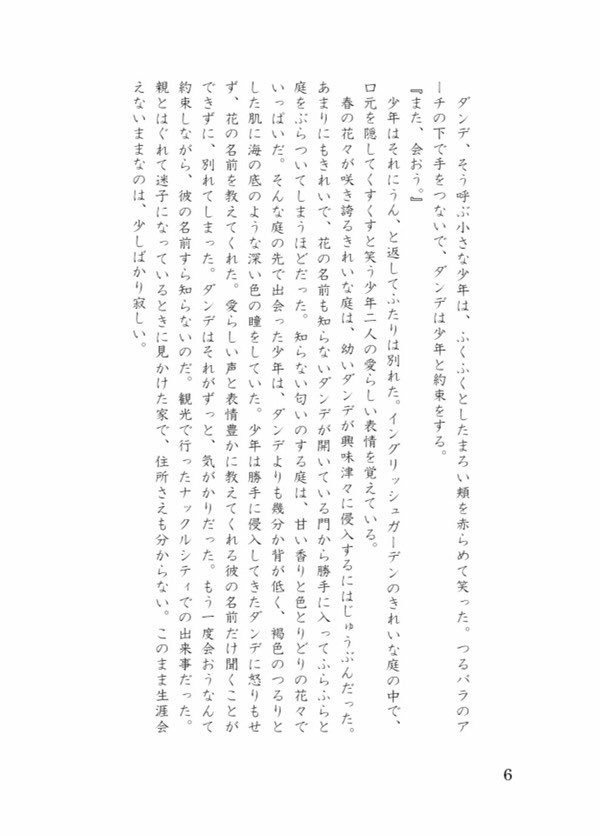 ダンデ、そう呼ぶ小さな少年は、ふくふくとしたまろい頬を赤らめて笑った。つるバラのア
ーチの下で手をつないで、ダンデは少年と約束をする。
『また、会おう。』
　少年はそれにうん、と返してふたりは別れた。イングリッシュガーデンのきれいな庭の中で、
口元を隠してくすくすと笑う少年二人の愛らしい表情を覚えている。
　春の花々が咲き誇るきれいな庭は、幼いダンデが興味津々に侵入するにはじゅうぶんだった。
あまりにもきれいで、花の名前も知らないダンデが開いている門から勝手に入ってふらふらと
庭をぶらついてしまうほどだった。知らない匂いのする庭は、甘い香りと色とりどりの花々で
いっぱいだ。そんな庭の先で出会った少年は、ダンデよりも幾分か背が低く、褐色のつるりと
した肌に海の底のような深い色の瞳をしていた。少年は勝手に侵入してきたダンデに怒りもせ
ず、花の名前を教えてくれた。愛らしい声と表情豊かに教えてくれる彼の名前だけ聞くことが
できずに、別れてしまった。ダンデはそれがずっと、気がかりだった。もう一度会おうなんて
約束しながら、彼の名前すら知らないのだ。観光で行ったナックルシティでの出来事だった。
親とはぐれて迷子になっているときに見かけた家で、住所さえも分からない。このまま生涯会
えないままなのは、少しばかり寂しい。
6